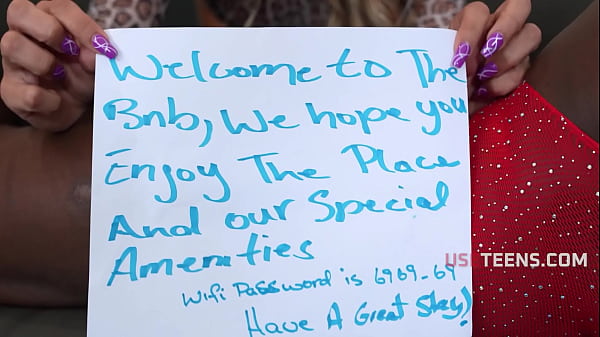 Welcome to The
Bnb, We hope you
Enjoy The Place
And our Special
Amenities
Wifi Password is 6969-69
Have A Great Stay!
USETEENS.COM